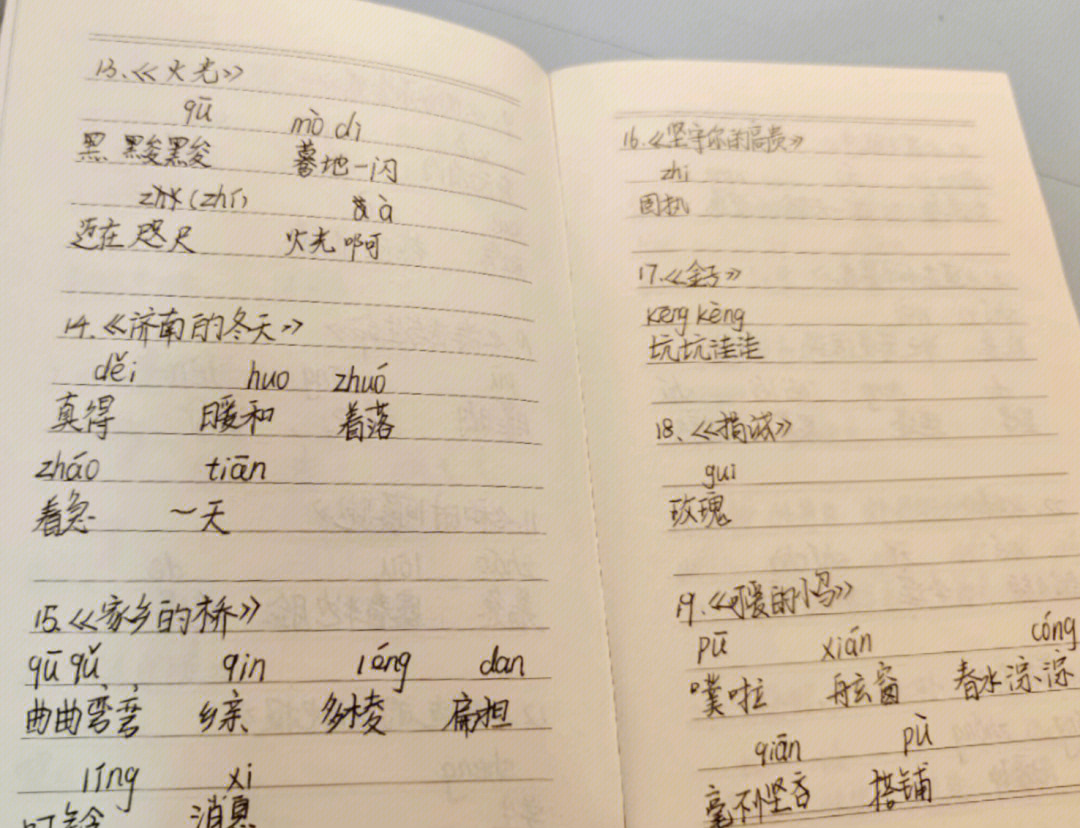 13.《火光》
qū mò dì
黑黢黢 蓦地一闪
(zhǐ) à
近在咫尺 火光啊
14.《济南的冬天》
děi huo zhuó
真得 暖和 着落
zháo tiān
着急 一天
15.《家乡的桥》
qū qǔ qin léng dan
曲曲弯弯 乡亲 多棱 扁担
líng xi
叮铃 消息
16.《坚守你的高贵》
zhi
固执
17.《》
keng kēng
坑坑洼洼
18.《捐诚》
gui
玫瑰
19.《可爱的小鸟》
pū xián cóng
噗啦 舷窗 春水淙淙
qiān pù
毫不悭吝 搭铺